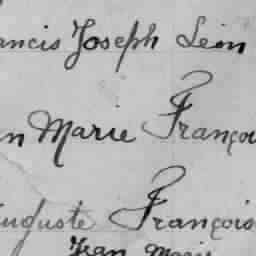 ancis Joseph Léon
n Marie Françoi
uguste François
Jean Marie